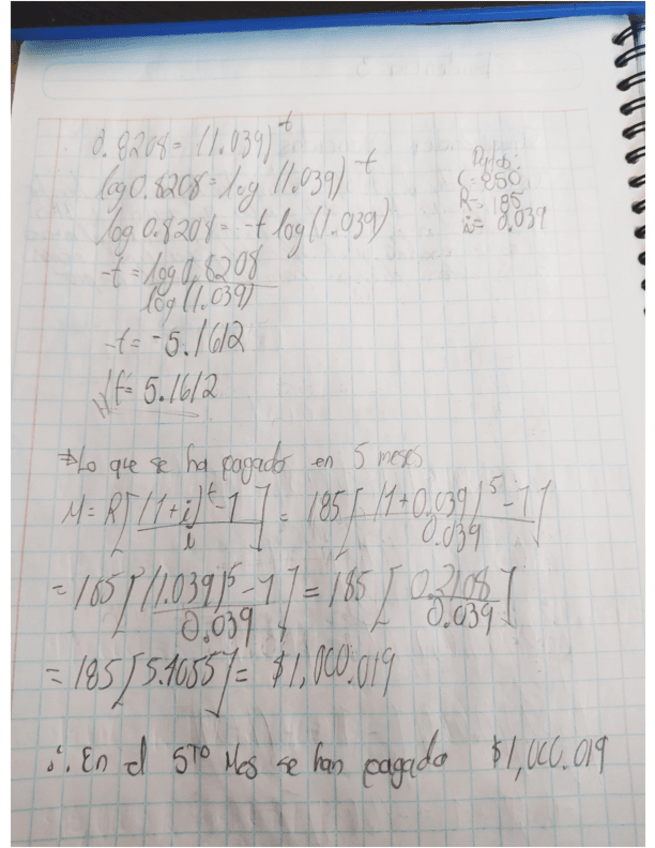 0.8208 = (1.039)^-t
log 0.8208 = log (1.039)^-t
log 0.8208 = -t log (1.039)
-t = log 0.8208 / log (1.039)
-t = -5.1612
t = 5.1612
C = 850
R = 185
i = 0.039
⇒ Lo que se ha pagado en 5 meses
M = R[(1+i)^t - 1 / i] = 185[(1+0.039)^5 - 1 / 0.039]
= 185[(1.039)^5 - 1 / 0.039] = 185[0.2108 / 0.039]
= 185[5.4055] = $1,000.019
∴ En el 5TO Mes se han pagado $1,000.019